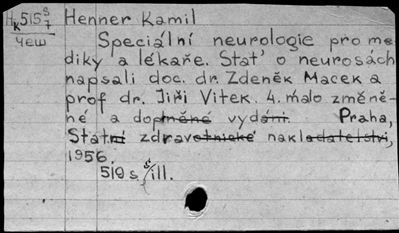 Нк515 5/7 Henner Kamil
чеш
Speciální neurologie pro me
diky a lékaře. Stať o neurosách
napsali doc. dr. Zdeněk Macek a
prof dr. Jiři Vitek. 4. málo změně-
né a doplněné vydání. Praha,
Státní zdravotnické nakladatelstvi,
1956.
510 s., ill.